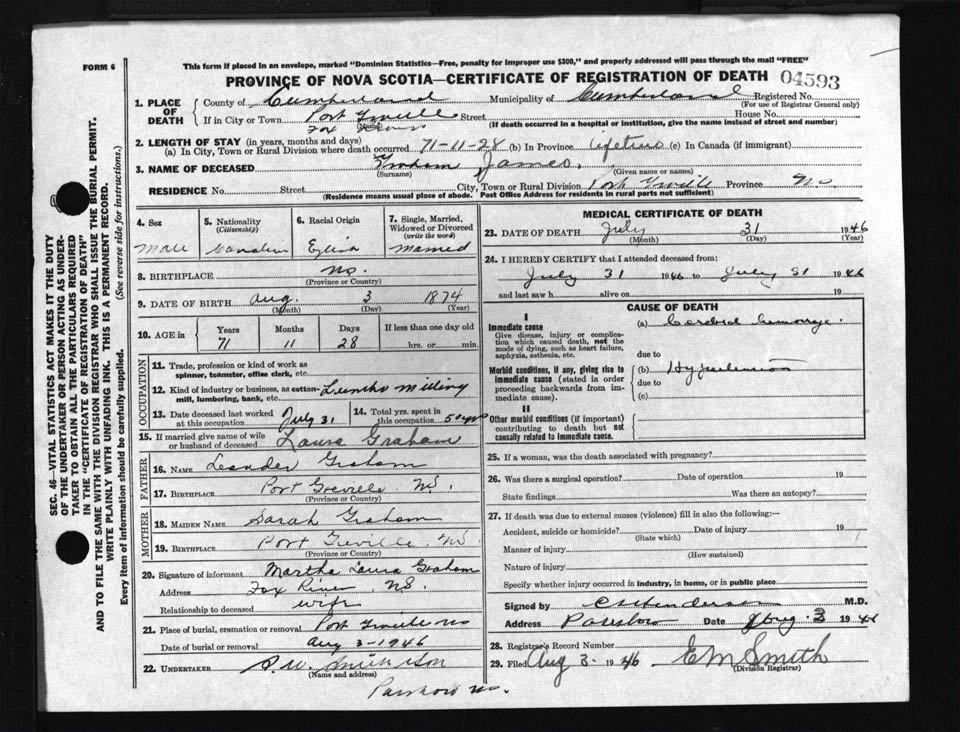 FORM 6
This form if placed in an envelope, marked "Dominion Statistics—Free, penalty for improper use $300," and properly addressed will pass through the mail "FREE"
PROVINCE OF NOVA SCOTIA—CERTIFICATE OF REGISTRATION OF DEATH 04593
1. PLACE OF DEATH
County of Cumberland Municipality of Cumberland Registered No.
(For use of Registrar General only)
If in City or Town Port Greville Street House No.
Fox River (If death occurred in a hospital or institution, give the name instead of street and number)
2. LENGTH OF STAY (in years, months and days)
(a) In City, Town or Rural Division where death occurred 71-11-28 (b) In Province lifetime (c) In Canada (if immigrant)
3. NAME OF DECEASED Graham James
(Surname) (Given name or names)
RESIDENCE No. Street City, Town or Rural Division Port Greville Province NS
(Residence means usual place of abode. Post Office Address for residents in rural parts not sufficient)
4. Sex Male
5. Nationality (Citizenship) Canadian
6. Racial Origin English
7. Single, Married, Widowed or Divorced (write the word) Married
8. BIRTHPLACE NS.
(Province or Country)
9. DATE OF BIRTH Aug. 3 1874
(Month) (Day) (Year)
10. AGE in Years Months Days If less than one day old
71 11 28 hrs. or min.
OCCUPATION
11. Trade, profession or kind of work as
spinner, teamster, office clerk, etc.
12. Kind of industry or business, as cotton- Lumber milling
mill, lumbering, bank, etc.
13. Date deceased last worked at this occupation July 31
14. Total yrs. spent in this occupation 50 yrs
15. If married give name of wife or husband of deceased Laura Graham
FATHER
16. NAME Leander Graham
17. BIRTHPLACE Port Greville NS.
(Province or Country)
MOTHER
18. MAIDEN NAME Sarah Graham
19. BIRTHPLACE Port Greville NS
(Province or Country)
20. Signature of informant Martha Laura Graham
Address Fox River NS.
Relationship to deceased wife
21. Place of burial, cremation or removal Port Greville NS
Date of burial or removal Aug 3-1946
22. UNDERTAKER
(Name and address)
MEDICAL CERTIFICATE OF DEATH
23. DATE OF DEATH July 31 1946
(Month) (Day) (Year)
24. I HEREBY CERTIFY that I attended deceased from:
July 31 1946 to July 31 1946
and last saw h alive on 19
CAUSE OF DEATH
I
Immediate cause
Give disease, injury or complication which caused death, not the mode of dying, such as heart failure, asphyxia, asthenia, etc.
(a) Cerebral hemorrhage.
due to
Morbid conditions, if any, giving rise to immediate cause (stated in order proceeding backwards from immediate cause).
(b) Hypertension
due to
(c)
II
Other morbid conditions (if important) contributing to death but not causally related to immediate cause.
25. If a woman, was the death associated with pregnancy?
26. Was there a surgical operation? Date of operation 19
State findings Was there an autopsy?
27. If death was due to external causes (violence) fill in also the following:—
Accident, suicide or homicide? Date of injury 19
(State which)
Manner of injury
(How sustained)
Nature of injury
Specify whether injury occurred in industry, in home, or in public place
Signed by Henderson M.D.
Address Parrsboro Date Aug. 3 1946
28. Registrar's Record Number
29. Filed Aug 3- 1946 E M Smith
(Division Registrar)
SEC. 46—VITAL STATISTICS ACT MAKES IT THE DUTY
OF THE UNDERTAKER OR PERSON ACTING AS UNDER-
TAKER TO OBTAIN ALL THE PARTICULARS REQUIRED
IN THE "CERTIFICATE OF REGISTRATION OF DEATH"
AND TO FILE THE SAME WITH THE DIVISION REGISTRAR WHO SHALL ISSUE THE BURIAL PERMIT.
WRITE PLAINLY WITH UNFADING INK. THIS IS A PERMANENT RECORD.
Every item of information should be carefully supplied. (See reverse side for instructions.)